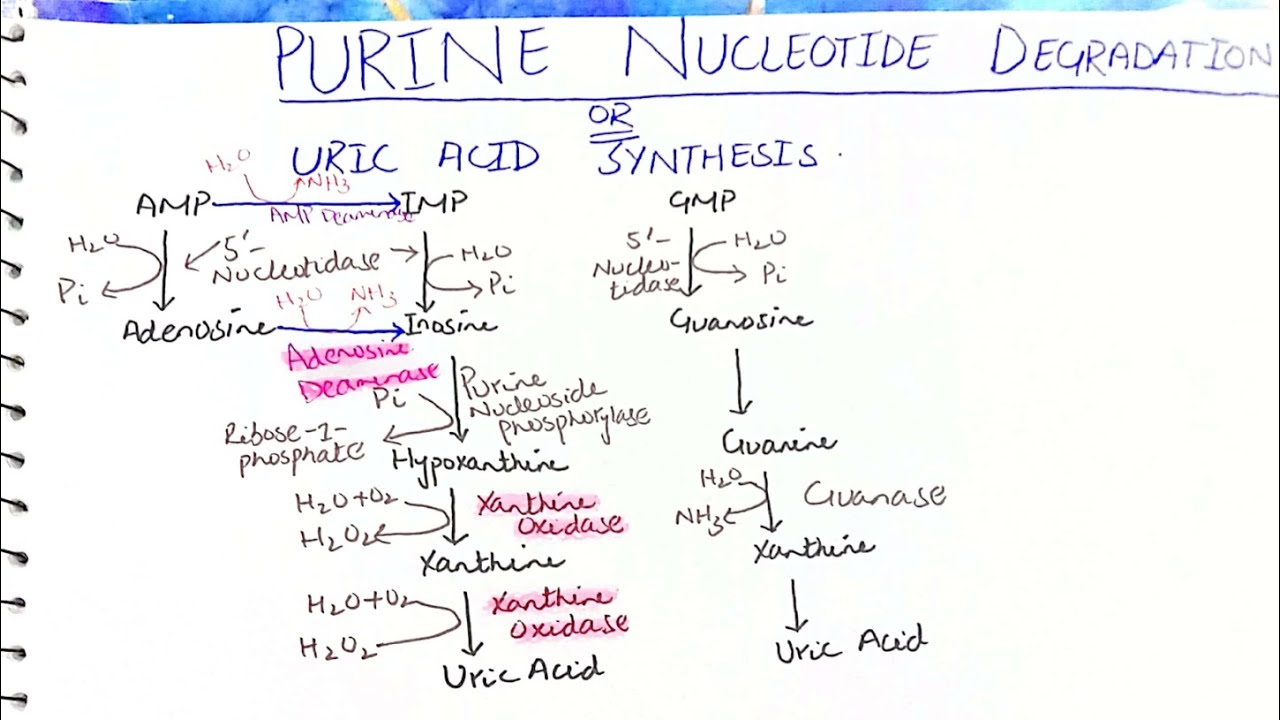 PURINE NUCLEOTIDE DEGRADATION
OR
URIC ACID SYNTHESIS.
H₂O NH₃
AMP IMP GMP
AMP Deaminase
H₂O 5'-Nucleotidase H₂O
Pi Pi
5'-Nucleo-tidase H₂O
Pi
H₂O NH₃
Adenosine Inosine Guanosine
Adenosine
Deaminase
Pi
Purine
Nucleoside
phosphorylase
Ribose-1-
phosphate
Hypoxanthine Guanine
H₂O+O₂ Xanthine
Oxidase
H₂O₂
H₂O Guanase
NH₃
Xanthine Xanthine
H₂O+O₂ Xanthine
Oxidase
H₂O₂
Uric Acid Uric Acid